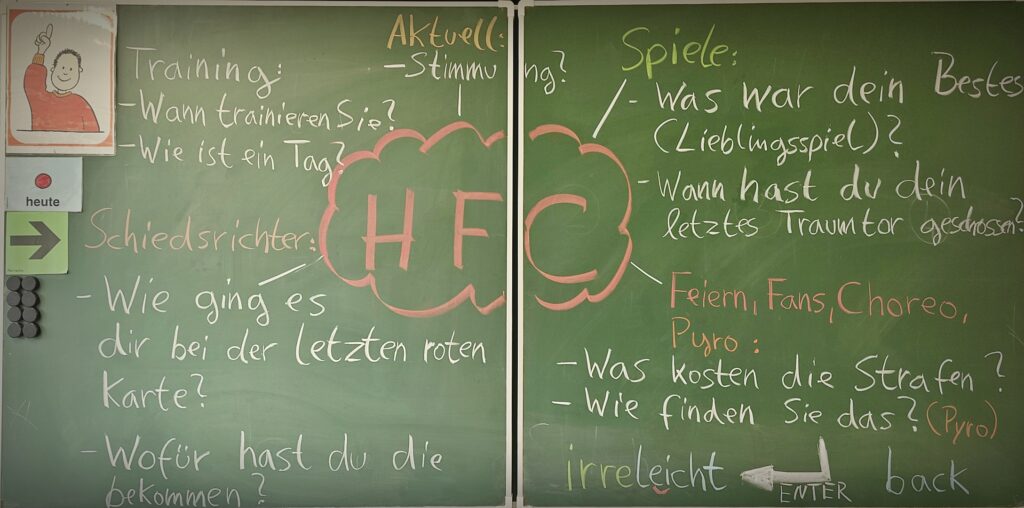 Aktuell:
- Stimmung?
Training:
- Wann trainieren Sie?
- Wie ist ein Tag?
heute
Schiedsrichter:
- Wie ging es
dir bei der letzten roten
Karte?
- Wofür hast du die
bekommen?
HFC
Spiele:
- Was war dein Bestes
(Lieblingsspiel)?
- Wann hast du dein
letztes Traumtor geschossen?
Feiern, Fans, Choreo,
Pyro:
- Was kosten die Strafen?
- Wie finden Sie das? (Pyro)
irreleicht
ENTER
back